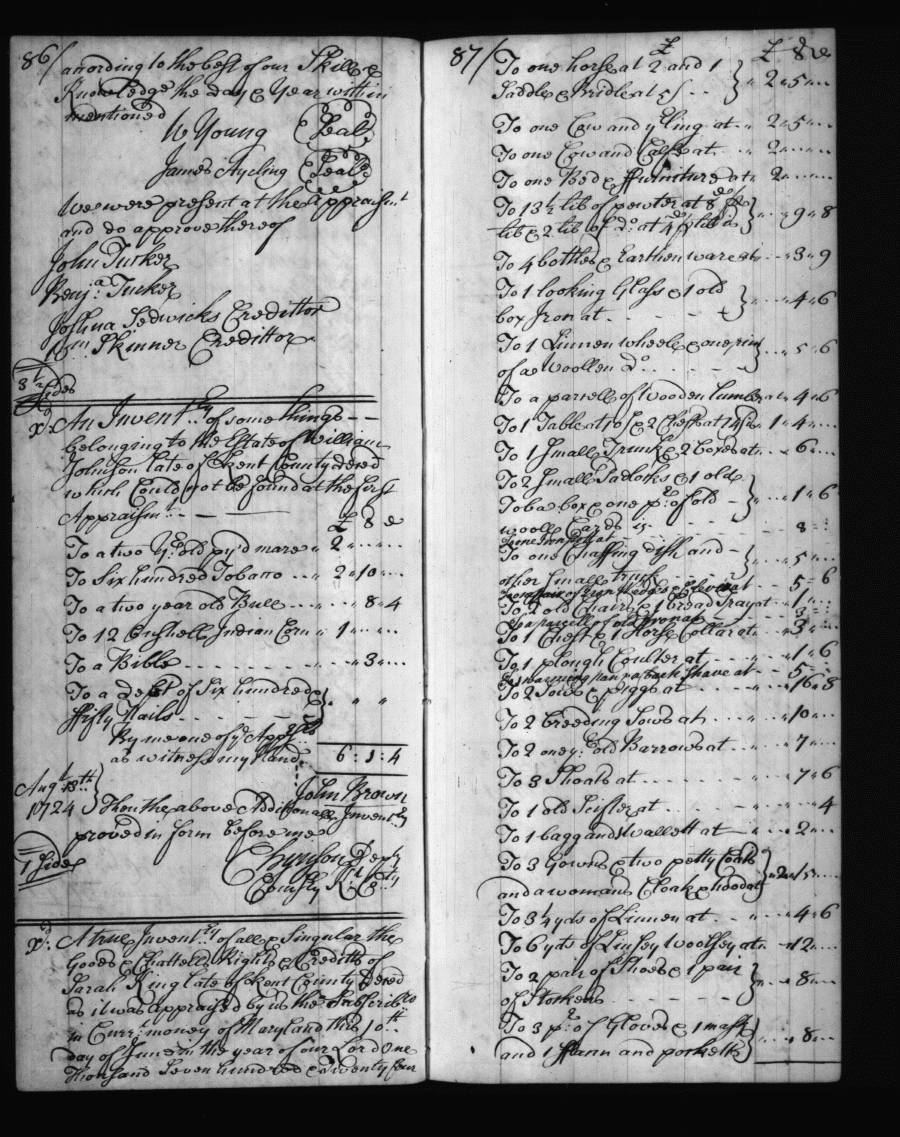 86/ according to the best of our Skill &
Knowledge the day & Year within
mentioned
W Young (Seal)
James Ayeling (Seal)
We were present at the Appraismt
and do approve thereof
John Tucker
Benja: Tucker
Joshua Sedwicks Credittor
Wm Skinner Credittor
3 1/2 Sides
xd: An Inventry of some things
belonging to the Estate of William
Johnson late of Kent County decd
which Could not be found at the first
Appraismt
£ S d
To a two Yr: old py'd mare " 2 " ..
To Six hundred Tobacco .. " 2 " 10 ..
To a two year old Bull .. " 8 " 4
To 12 Bushells Indian Corn " 1 " ..
To a Bible - - - " " 3 " ..
To a Debt of Six hundred &
ffifty Nails - - } " "
By me one of ye Apprs
as witness my hand 6 : 1 : 4
John Brown
Augt 18th
1724 } Then the above Additionall Inventry
proved in form before me
Depty
County
1 Sides
xd: A true Inventry of all & Singular the
Goods & Chattells Rights & Credits of
Sarah King late of Kent County Decd
as it was appraised by us the Subscribrs
in Currt money of Maryland this 10th
day of June in the year of our Lord One
Thousand Seven hundred & Twenty four
87/ £ £ S d
To one horse at 2 and 1
Saddle & Bridle at 5/ - } " 2 " 5 " ..
To one Cow and yrling at .. 2 " 5 " ..
To one Cow and Calfe at .. " 2 " ..
To one Bed & ffurniture at " 2 " ..
To 13 1/2 lib of pewter at 8d p
lib & 2 lib of Do: at 4d p lib } " .. " 9 " 8
To 4 bottles & Earthen ware at " .. " 3 " 9
To 1 looking Glass & 1 old
box Iron at - - - } " .. " 4 " 6
To 1 Linnen wheele & one
of a Woollen Do } .. " 5 " 6
To a parcell of Wooden lumber at " 4 " 6
To 1 Table at 10/ & 2 Chests at 14/ is " 1 " 4 " ..
To 1 Small Trunk & 2 Boxes at .. " 6 " ..
To 2 Small Padlocks & 1 old
Toba box & one pr: of old - } " .. " 1 " 6
wooll Cards is - - 8 - :
To one Iron Pott at
To one Chaffing dish and -
other Small trush } " .. " 5 " ..
at - 5 - 6
To 2 old Chairs & 1 bread tray at - " 1 " ..
To a parcell of old Iron at - 3 -
To 1 Chest & 1 Horse Collar at .. " 3 " ..
To 1 plough Coulter at - - " " 1 " 6
To 1 warming pan at - 5 -
To 2 Sows & piggs at - - " .. " 16 " 8
To 2 breeding Sows at - - " .. " 10 " ..
To 2 one yr: old Barrows at - " .. " 7 " ..
To 3 Shoats at - - - " " 7 " 6
To 1 old at - - - " " 4
To 1 bagg and 1 wallett at - " .. " 2 " ..
To 3 Gowns & two petty Coats
and a womans Cloak & hood at } " 2 " 15 " ..
To 3 1/4 yds of Linnen at .. - " .. " 4 " 6
To 6 yds of Linsey Woolsey at " " 12 " ..
To 2 pair of Shoes & 1 pair
of Stockens - - - } " .. " 8 " ..
To 3 pr: of Gloves & 1 mask
and 1 ffann and pocketts } " .. " 8 " ..